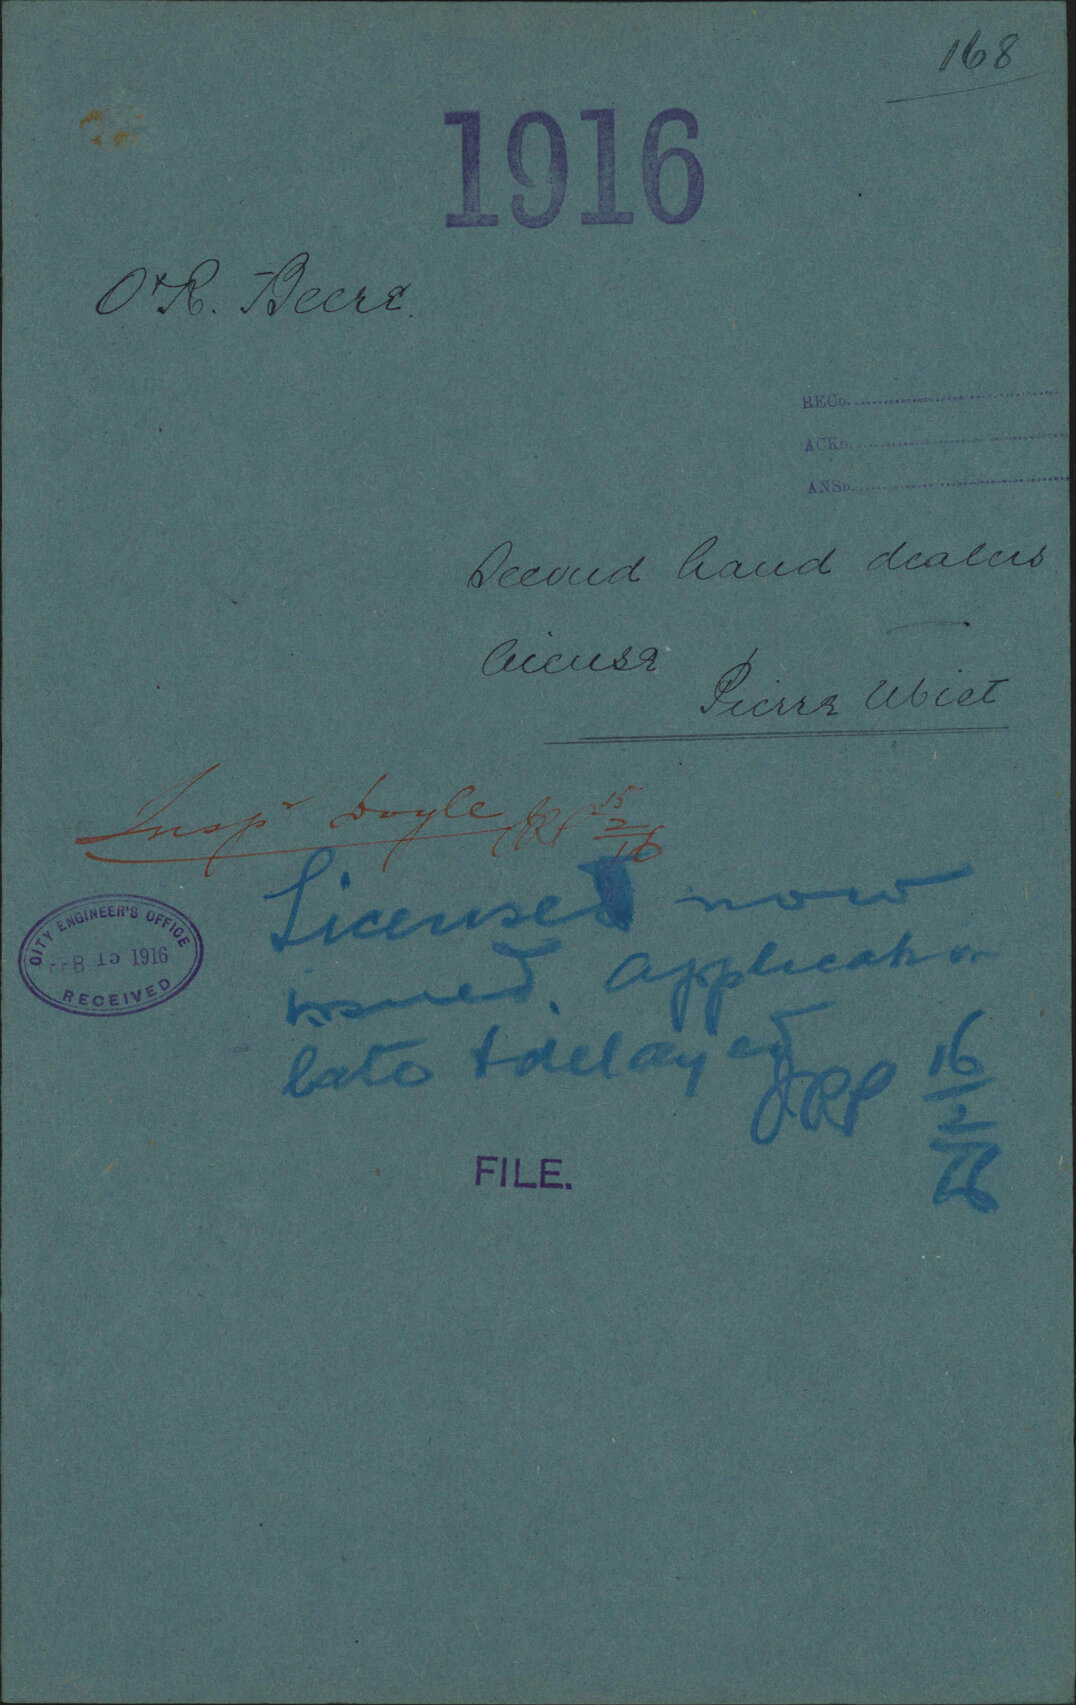 168
1916
O & R. Beere.
RECD.
ACKD.
ANSD.
Second hand dealers
license
Pierre Ubiet
Inspr Doyle JRP 15/2/16
CITY ENGINEER'S OFFICE
FEB 15 1916
RECEIVED
License now
issued. Application
late & delayed
JRP 16/2/16
FILE.